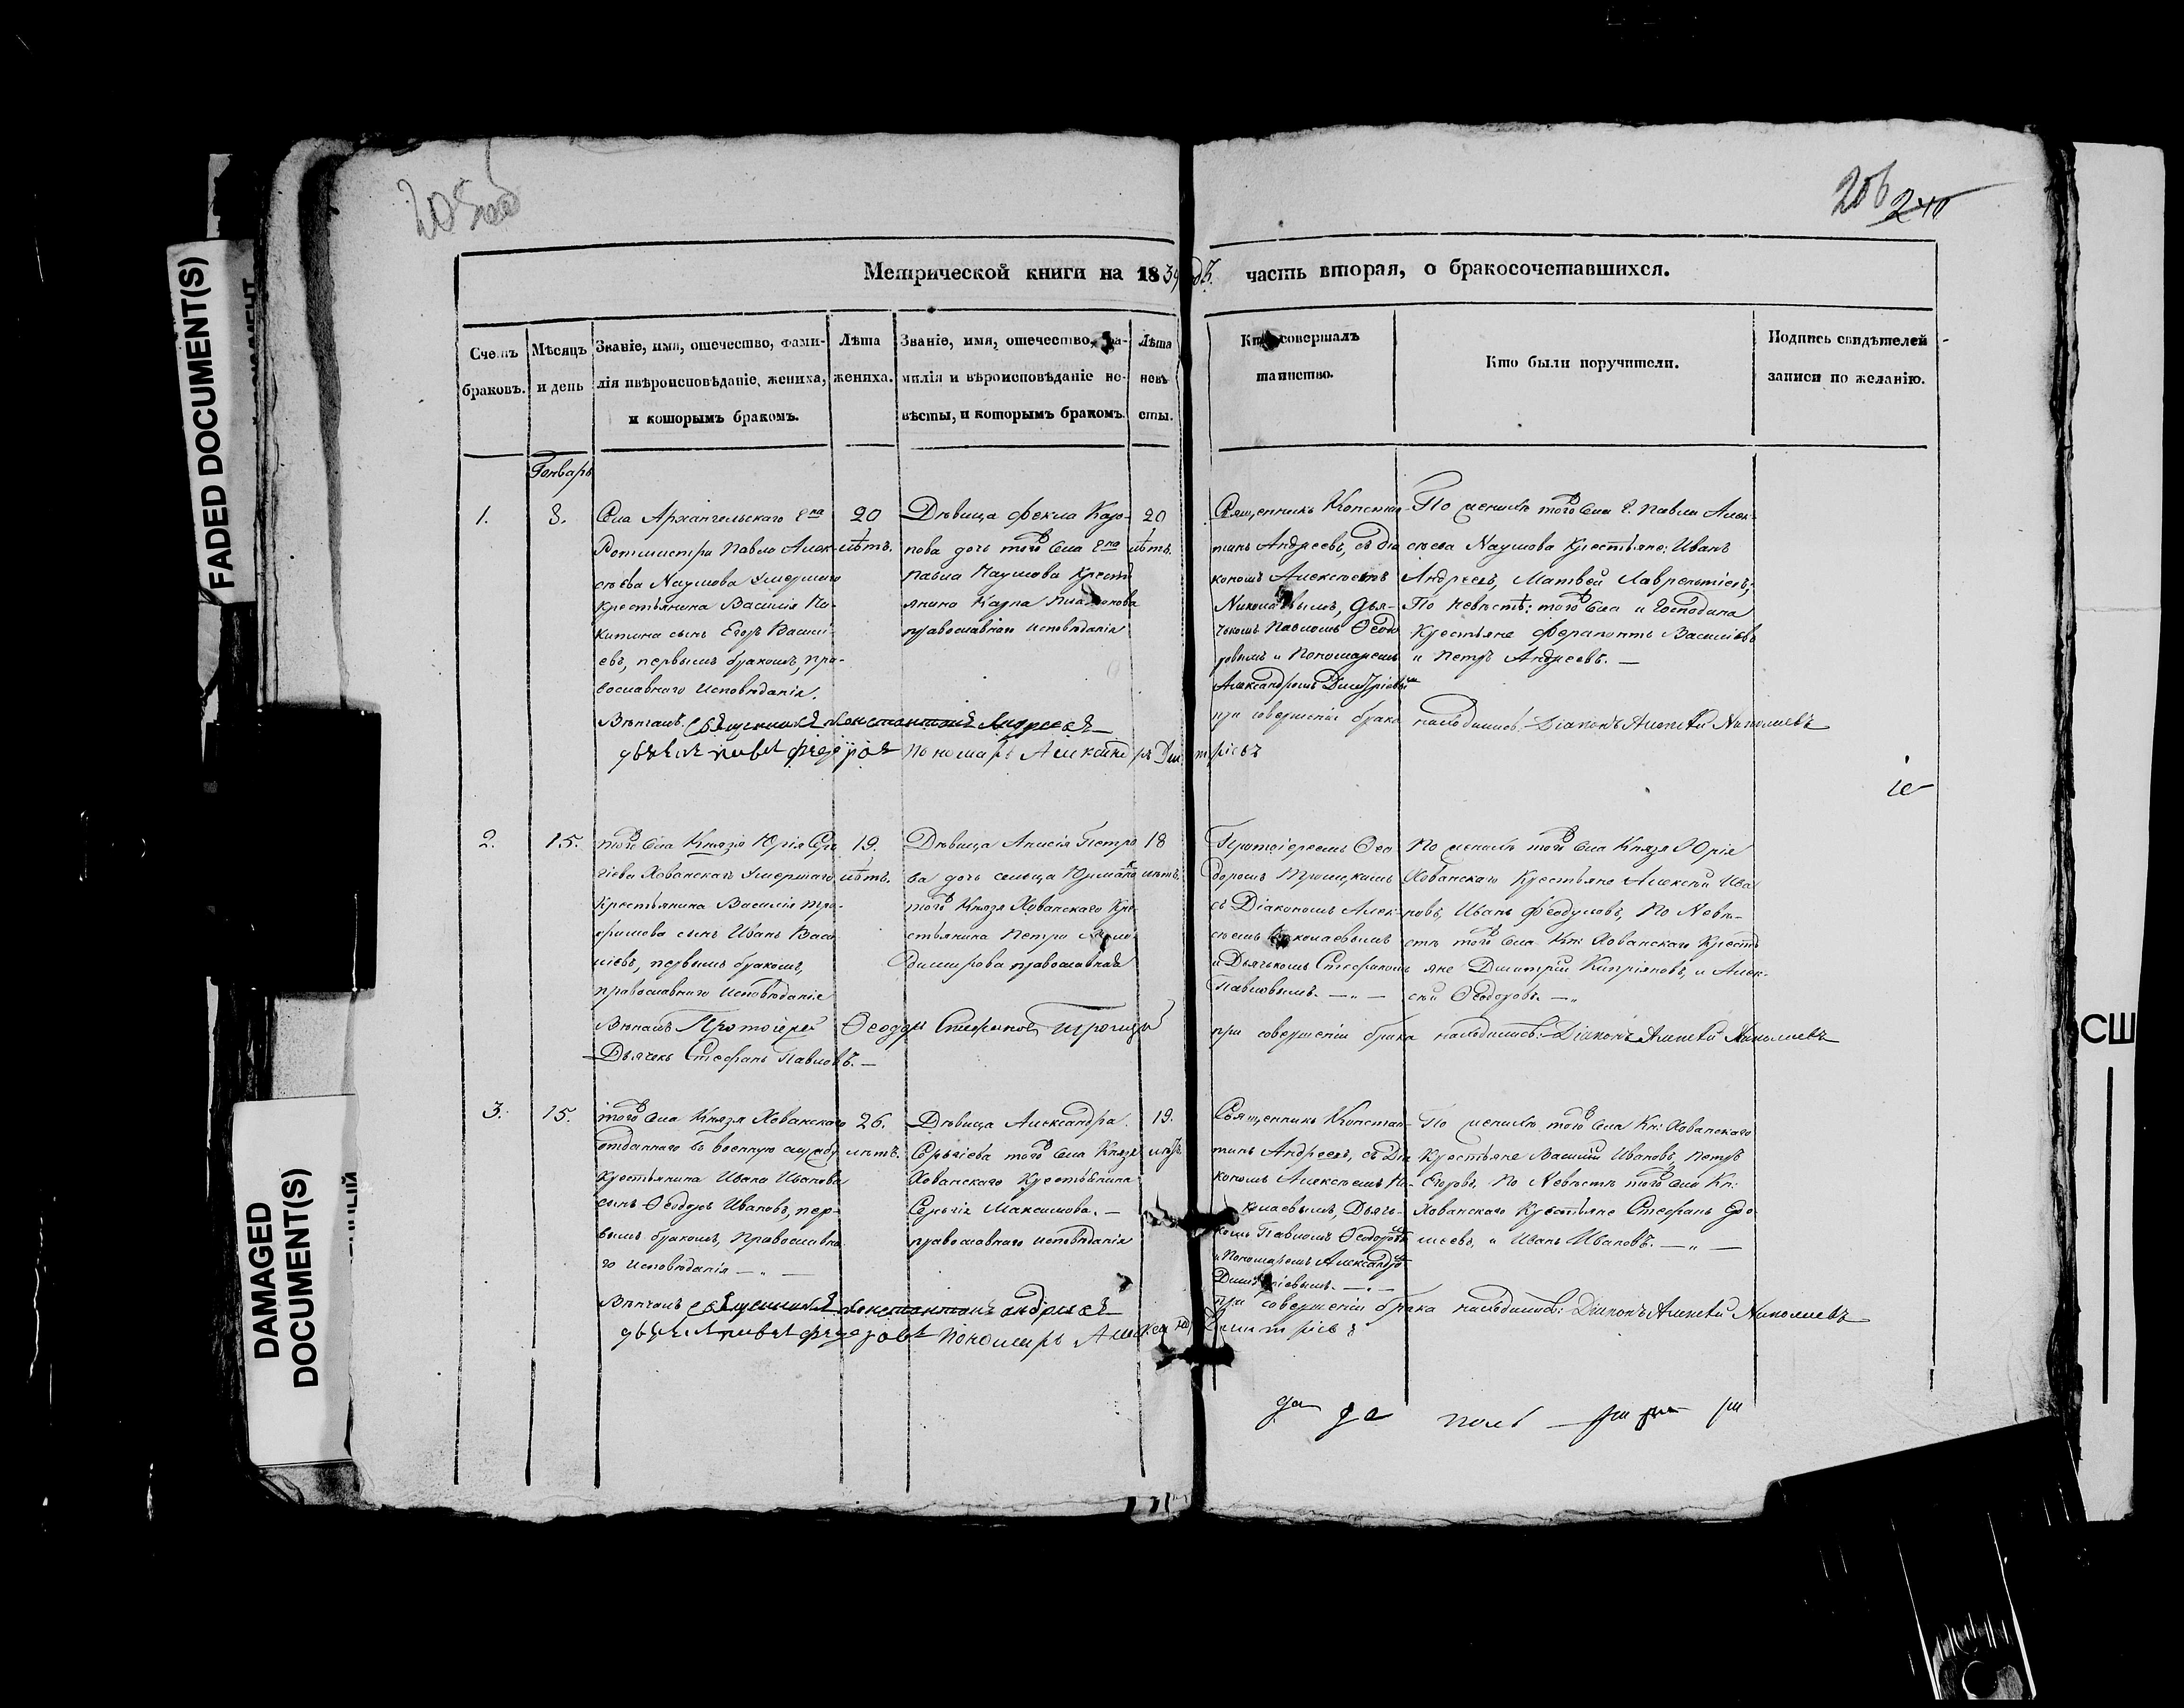 205об
206 240
FADED DOCUMENT(S)
DAMAGED
DOCUMENT(S)
Метрической книги на 1839 годъ. часть вторая, о бракосочетавшихся.
Счетъ
браковъ.
Мѣсяцъ
и день
Званіе, имя, отечество, фами-
лія и вѣроисповѣданіе, жениха,
и которымъ бракомъ.
Лѣта
жениха.
Званіе, имя, отечество, фа-
милія и вѣроисповѣданіе не-
вѣсты, и которымъ бракомъ.
Лѣта
невѣ-
сты.
Кто совершалъ
таинство.
Кто были поручители.
Подпись свидѣтелей
записи по желанію.
Генварь
1.
8.
Села Архангельскаго Гна
Ротмистра Павла Алек-
сѣева Наумова умершаго
крестьянина Василія Ни-
китина сынъ Егоръ Васи-
евъ, первымъ бракомъ, пра-
вославнаго исповѣданія.
20
лѣтъ.
Дѣвица Фекла Кар-
пова дочь тогожъ села Гна
Павла Наумова крестья
янина Карпа
православнаго исповѣданія
20
лѣтъ.
Священникъ Констан-
тинъ Андреевъ, съ діа
кономъ Алексѣемъ
Николаевымъ, дья-
чкомъ Павломъ Ѳеодо
ровымъ и Пономаремъ
Александромъ Димитріевым
По женихѣ тогожъ села Г. Павла Алек-
сѣева Наумова крестьяне: Иванъ
Андреевъ, Матвей Лаврентіевъ,
По невѣстѣ: тогожъ села и Господина
крестьяне Ферапонтъ Васильевъ
и Петръ Андреевъ. —
Вѣнчалъ Священникъ Константинъ Андреевъ
при совершеніи брака находились: Діаконъ Алексѣй Николаевъ
дьячекъ павелъ федоровъ Пономарь Александръ Дмитріевъ
2.
15.
тогожъ села Князя Юрія Сер
гіева Хованскаго умершаго
крестьянина Василія Тро-
фимова сынъ Иванъ Васи
ліевъ, первымъ бракомъ,
православнаго исповѣданія
19.
лѣтъ.
Дѣвица Анисія Петро
ва дочь сельца
тогожъ Князя Хованскаго кре-
стьянина Петра
православная
18
лѣтъ.
Протоіереемъ Ѳео
доромъ Троицкимъ
съ Діакономъ Алек-
сѣемъ Николаевымъ
и Дьячкомъ Стефаномъ
Павловымъ. — „ —
По женихѣ тогожъ села Князя Юрія
Хованскаго крестьяне Алексѣй Ива
новъ, Иванъ Феодуловъ, По Невѣ-
стѣ тогожъ села Кн: Хованскаго крестья
яне Дмитрій Кипріяновъ, и Алек-
сѣй Ѳеодоровъ. — „
Вѣнчалъ Протоіерей Ѳеодоръ Стефановъ Троицкій
при совершеніи брака находились: Діаконъ Алексѣй Николаевъ
Дьячекъ Стефанъ Павловъ. —
3.
15.
тогожъ села Князя Хованскаго
отданнаго въ военную службу
крестьянина Ивана Иванова
сынъ Ѳеодоръ Ивановъ, пер-
вымъ бракомъ, Православна
го исповѣданія — „ —
26.
лѣтъ.
Дѣвица Александра
Сергіева тогожъ села Князя
Хованскаго крестьянина
Сергія Максимова. —
православнаго исповѣданія
19.
лѣтъ.
Священникъ Констан-
тинъ Андреевъ, съ Діа
кономъ Алексѣемъ Ни-
колаевымъ, Дьяч-
комъ Павломъ Ѳеодоровым
и Пономаремъ Александром
Димитріевымъ. — „ —
По женихѣ тогожъ села Кн: Хованскаго
крестьяне Василій Ивановъ, Петръ
Егоровъ, По Невѣстѣ тогожъ села Кн:
Хованскаго крестьяне Стефанъ Ер
меевъ, и Иванъ Ивановъ. — „ —
Вѣнчалъ священникъ Константинъ андреевъ
при совершеніи брака находились: Діаконъ Алексѣй Николаевъ
дьячекъ павелъ федоровъ пономарь Александръ Дмитріевъ